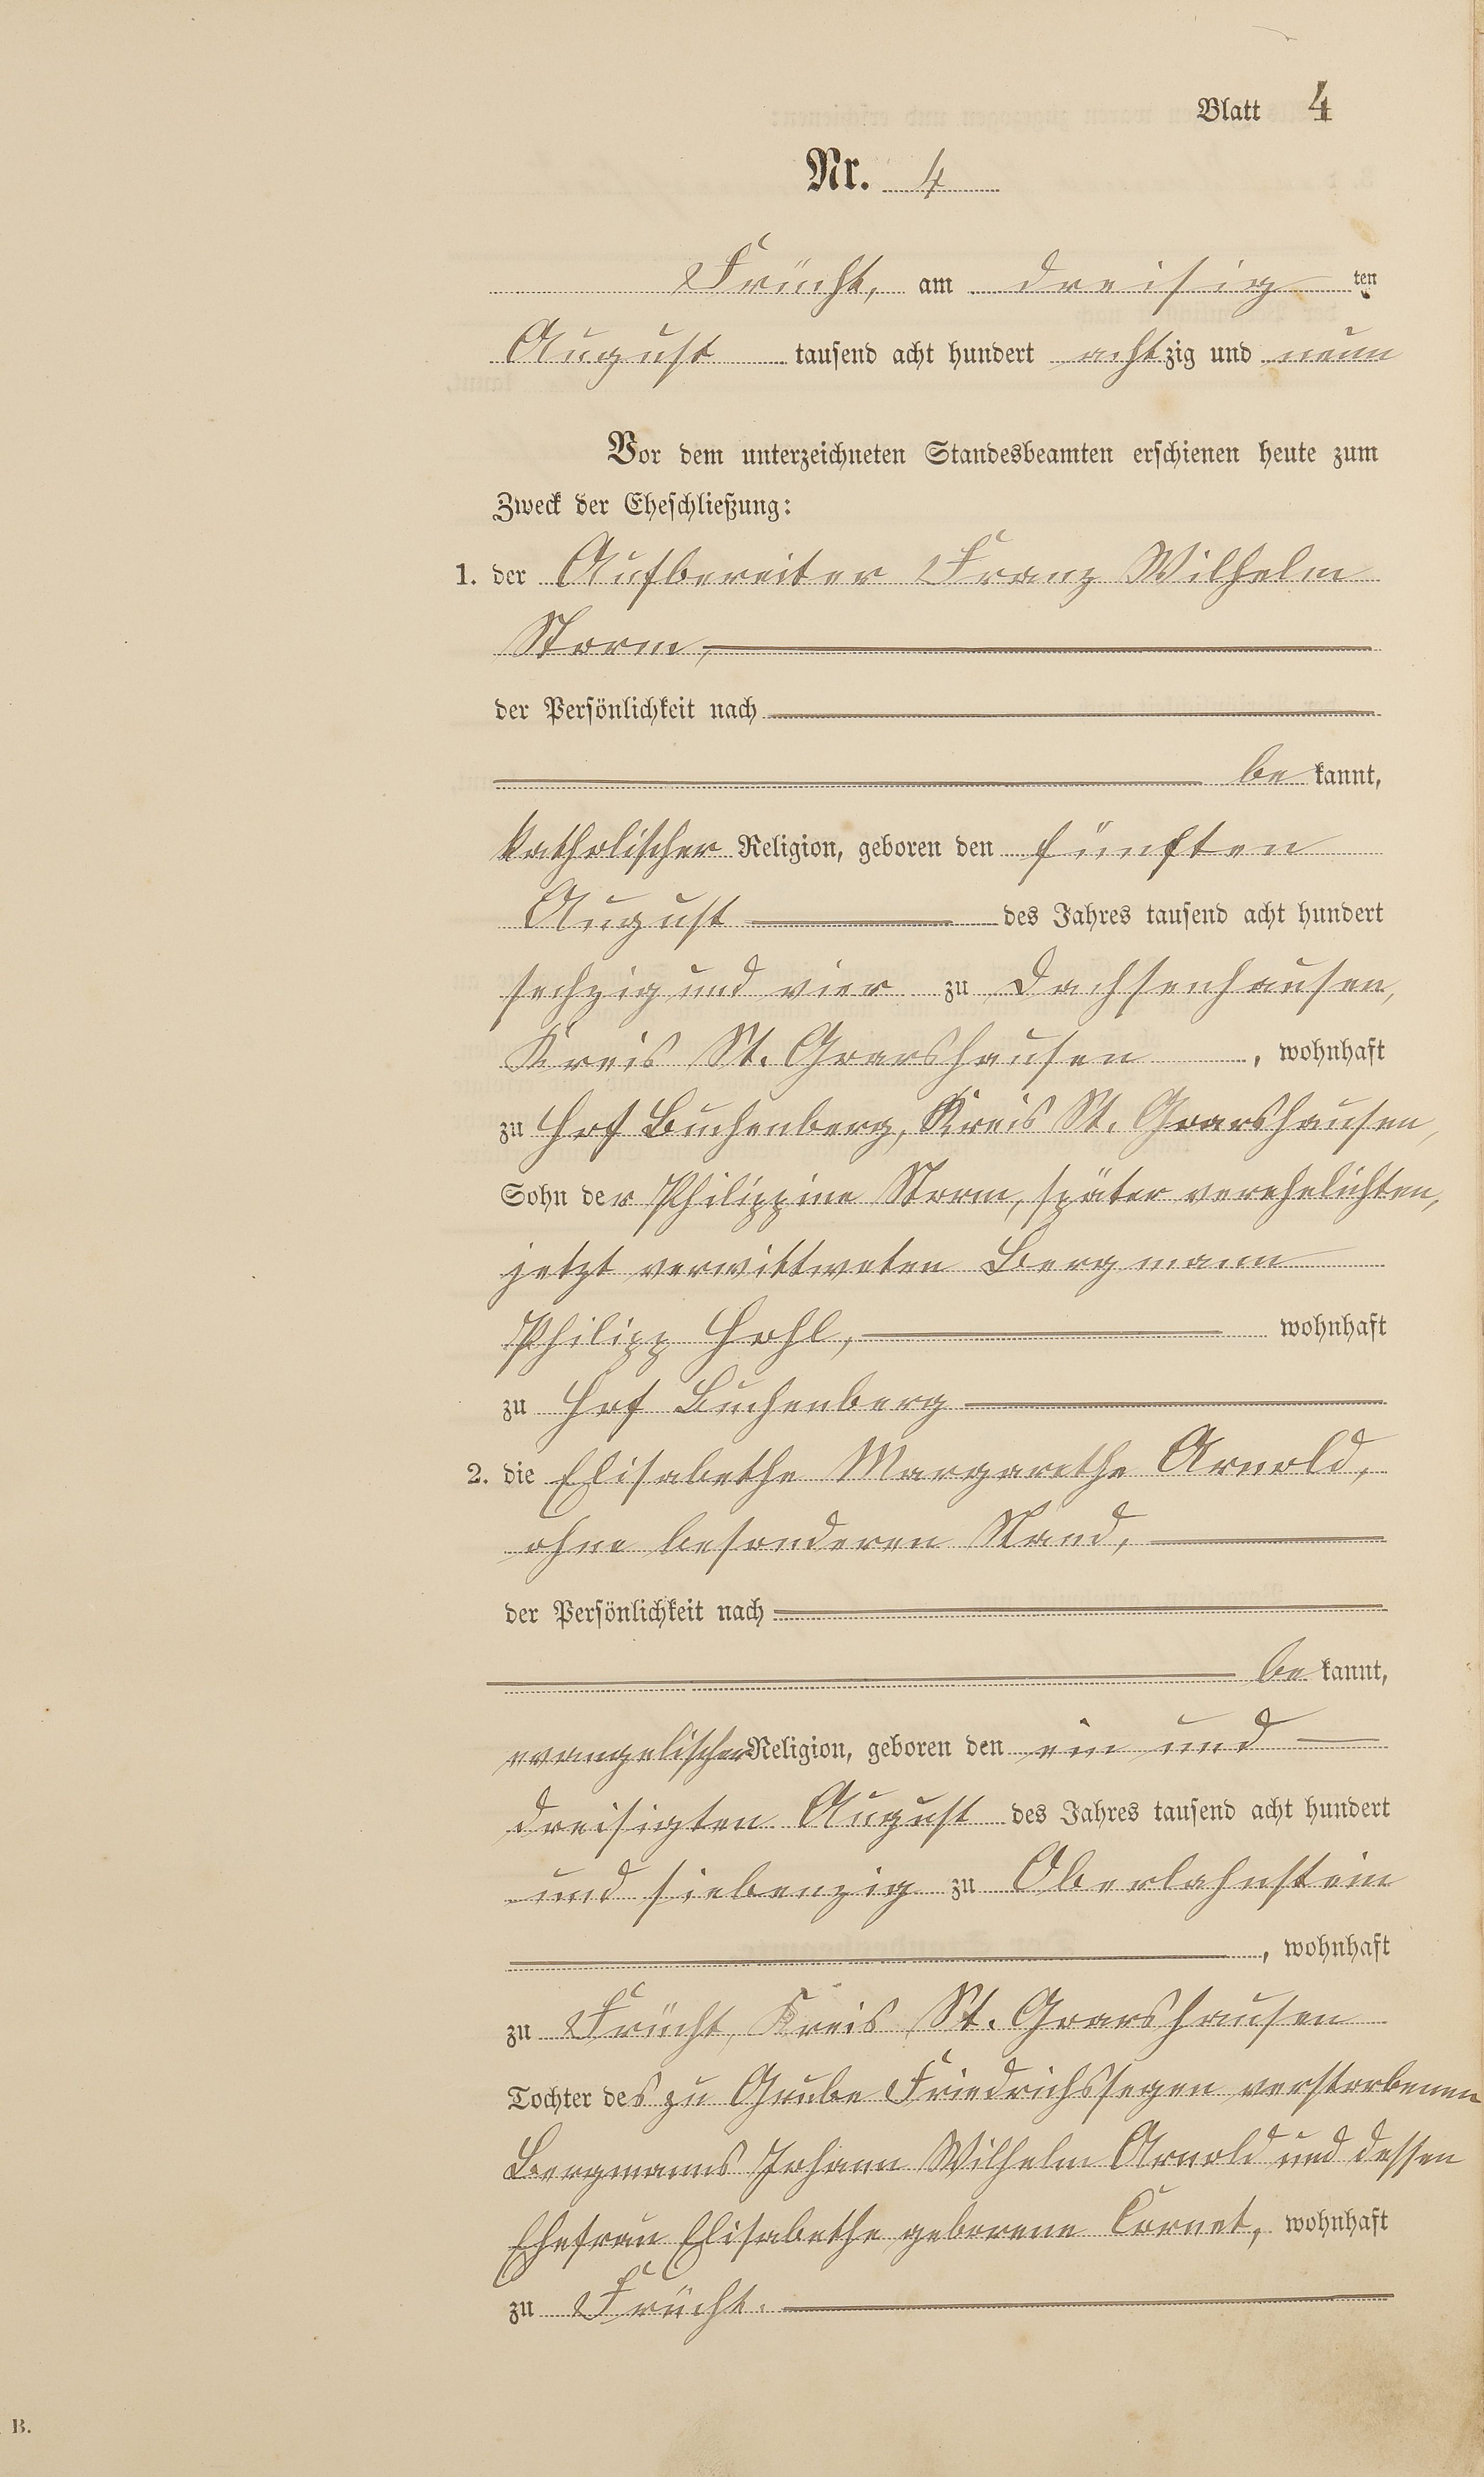 Blatt 4
Nr. 4
Frücht, am dreisig ten
August tausend acht hundert achtzig und neun
Vor dem unterzeichneten Standesbeamten erschienen heute zum
Zweck der Eheschließung:
1. der Aufbereiter Franz Wilhelm
Storm,
der Persönlichkeit nach
be kannt,
katholischer Religion, geboren den fünften
August des Jahres tausend acht hundert
sechzig und vier zu Dachsenhausen,
Kreis St. Goarshausen, wohnhaft
zu Hof Buchenberg, Kreis St. Goarshausen,
Sohn der Philippine Storm, später verehelichten,
jetzt verwittweten Bergmann
Philipp Hohl, wohnhaft
zu Hof Buchenberg
2. die Elisabethe Margarethe Arnold,
ohne besonderen Stand,
der Persönlichkeit nach
be kannt,
evangelischer Religion, geboren den ein und
dreisigten August des Jahres tausend acht hundert
und siebenzig zu Oberlahnstein
, wohnhaft
zu Frücht, Kreis St. Goarshausen
Tochter des zu Grube Friedrichssegen verstorbenen
Bergmanns Johann Wilhelm Arnold und dessen
Ehefrau Elisabethe geborene Cornet, wohnhaft
zu Frücht.
B.